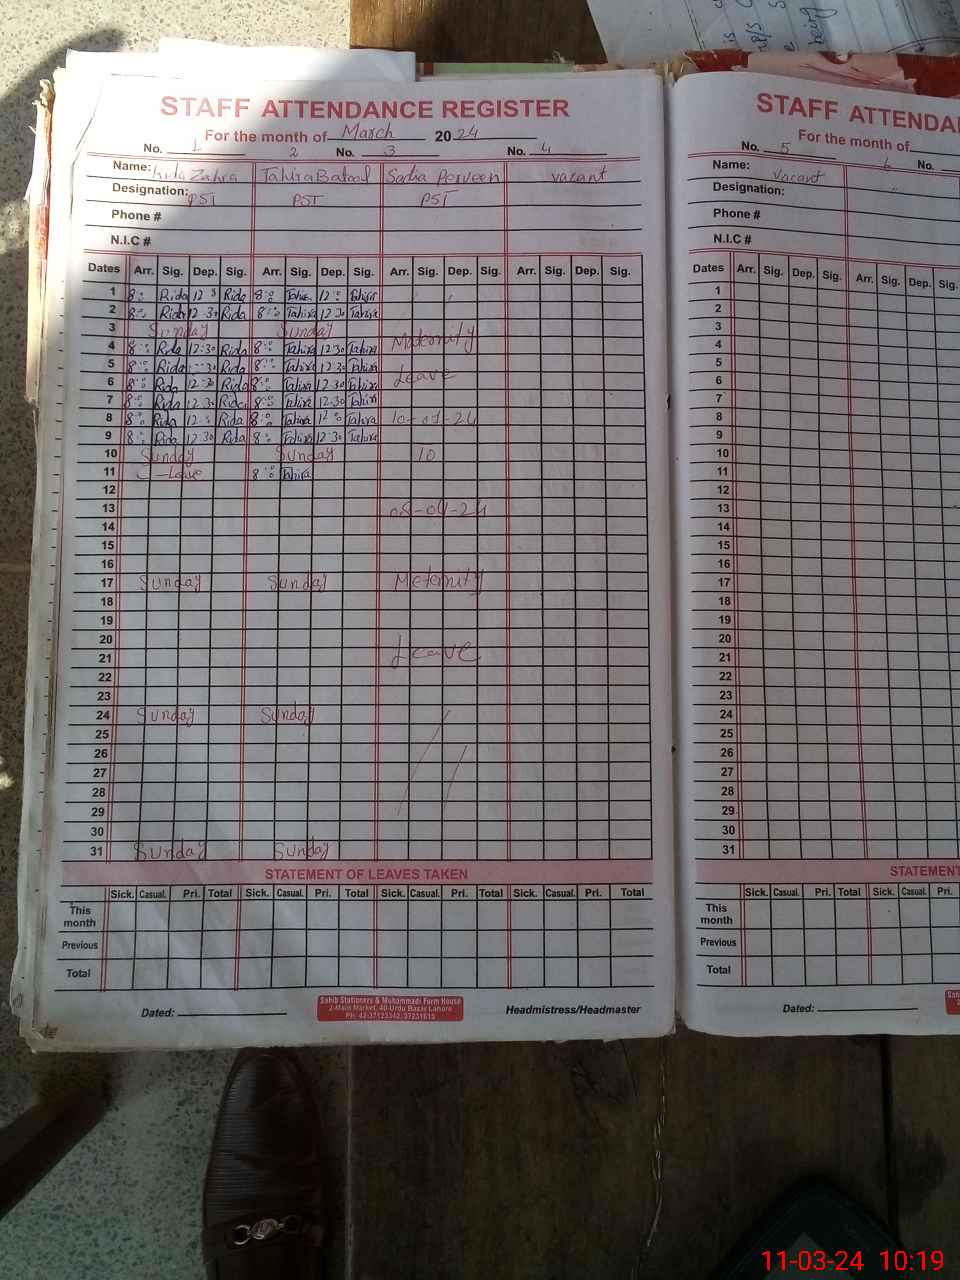 STAFF ATTENDANCE REGISTER
For the month of March 2024
No. 1 2 No. 3 No. 4
Name: Zahra Tahira Batool Sadia Perveen vacant
Designation: PST PST PST
Phone #
N.I.C #
Dates Arr. Sig. Dep. Sig. Arr. Sig. Dep. Sig. Arr. Sig. Dep. Sig. Arr. Sig. Dep. Sig.
1 8:00 Rida 12 Rida 8:00 Tahira 12 Tahira
2 8:00 Rida 12:30 Rida 8:00 Tahira 12:30 Tahira
3 Sunday Sunday
4 8:00 Rida 12:30 Rida 8:00 Tahira 12:30 Tahira Maternity
5 8:00 Rida :30 Rida 8:00 Tahira 12:30 Tahira
6 8:00 Rida 12:30 Rida 8:00 Tahira 12:30 Tahira Leave
7 8:00 Rida 12:30 Rida 8:00 Tahira 12:30 Tahira
8 8:00 Rida 12 Rida 8:00 Tahira 12 Tahira 10-01-24
9 8:00 Rida 12:30 Rida 8:00 Tahira 12:30 Tahira
10 Sunday Sunday 10
11 Leave 8:00 Tahira
12
13 08-04-24
14
15
16
17 Sunday Sunday Meternity
18
19
20
21 Leave
22
23
24 Sunday Sunday
25
26
27
28
29
30
31 Sunday Sunday
STATEMENT OF LEAVES TAKEN
Sick. Casual. Pri. Total Sick. Casual. Pri. Total Sick. Casual. Pri. Total Sick. Casual. Pri. Total
This month
Previous
Total
Dated:
Sahib Stationers & Muhammadi Form House
2-Main Market, 40-Urdu Bazar Lahore
Ph: 42-37123342, 37231615
Headmistress/Headmaster
STAFF ATTENDA
For the month of
No. 5 6 No.
Name: vacant
Designation:
Phone #
N.I.C #
Dates Arr. Sig. Dep. Sig. Arr. Sig. Dep. Sig.
1
2
3
4
5
6
7
8
9
10
11
12
13
14
15
16
17
18
19
20
21
22
23
24
25
26
27
28
29
30
31
STATEMENT
Sick. Casual. Pri. Total Sick. Casual. Pri.
This month
Previous
Total
Dated:
being
11-03-24 10:19